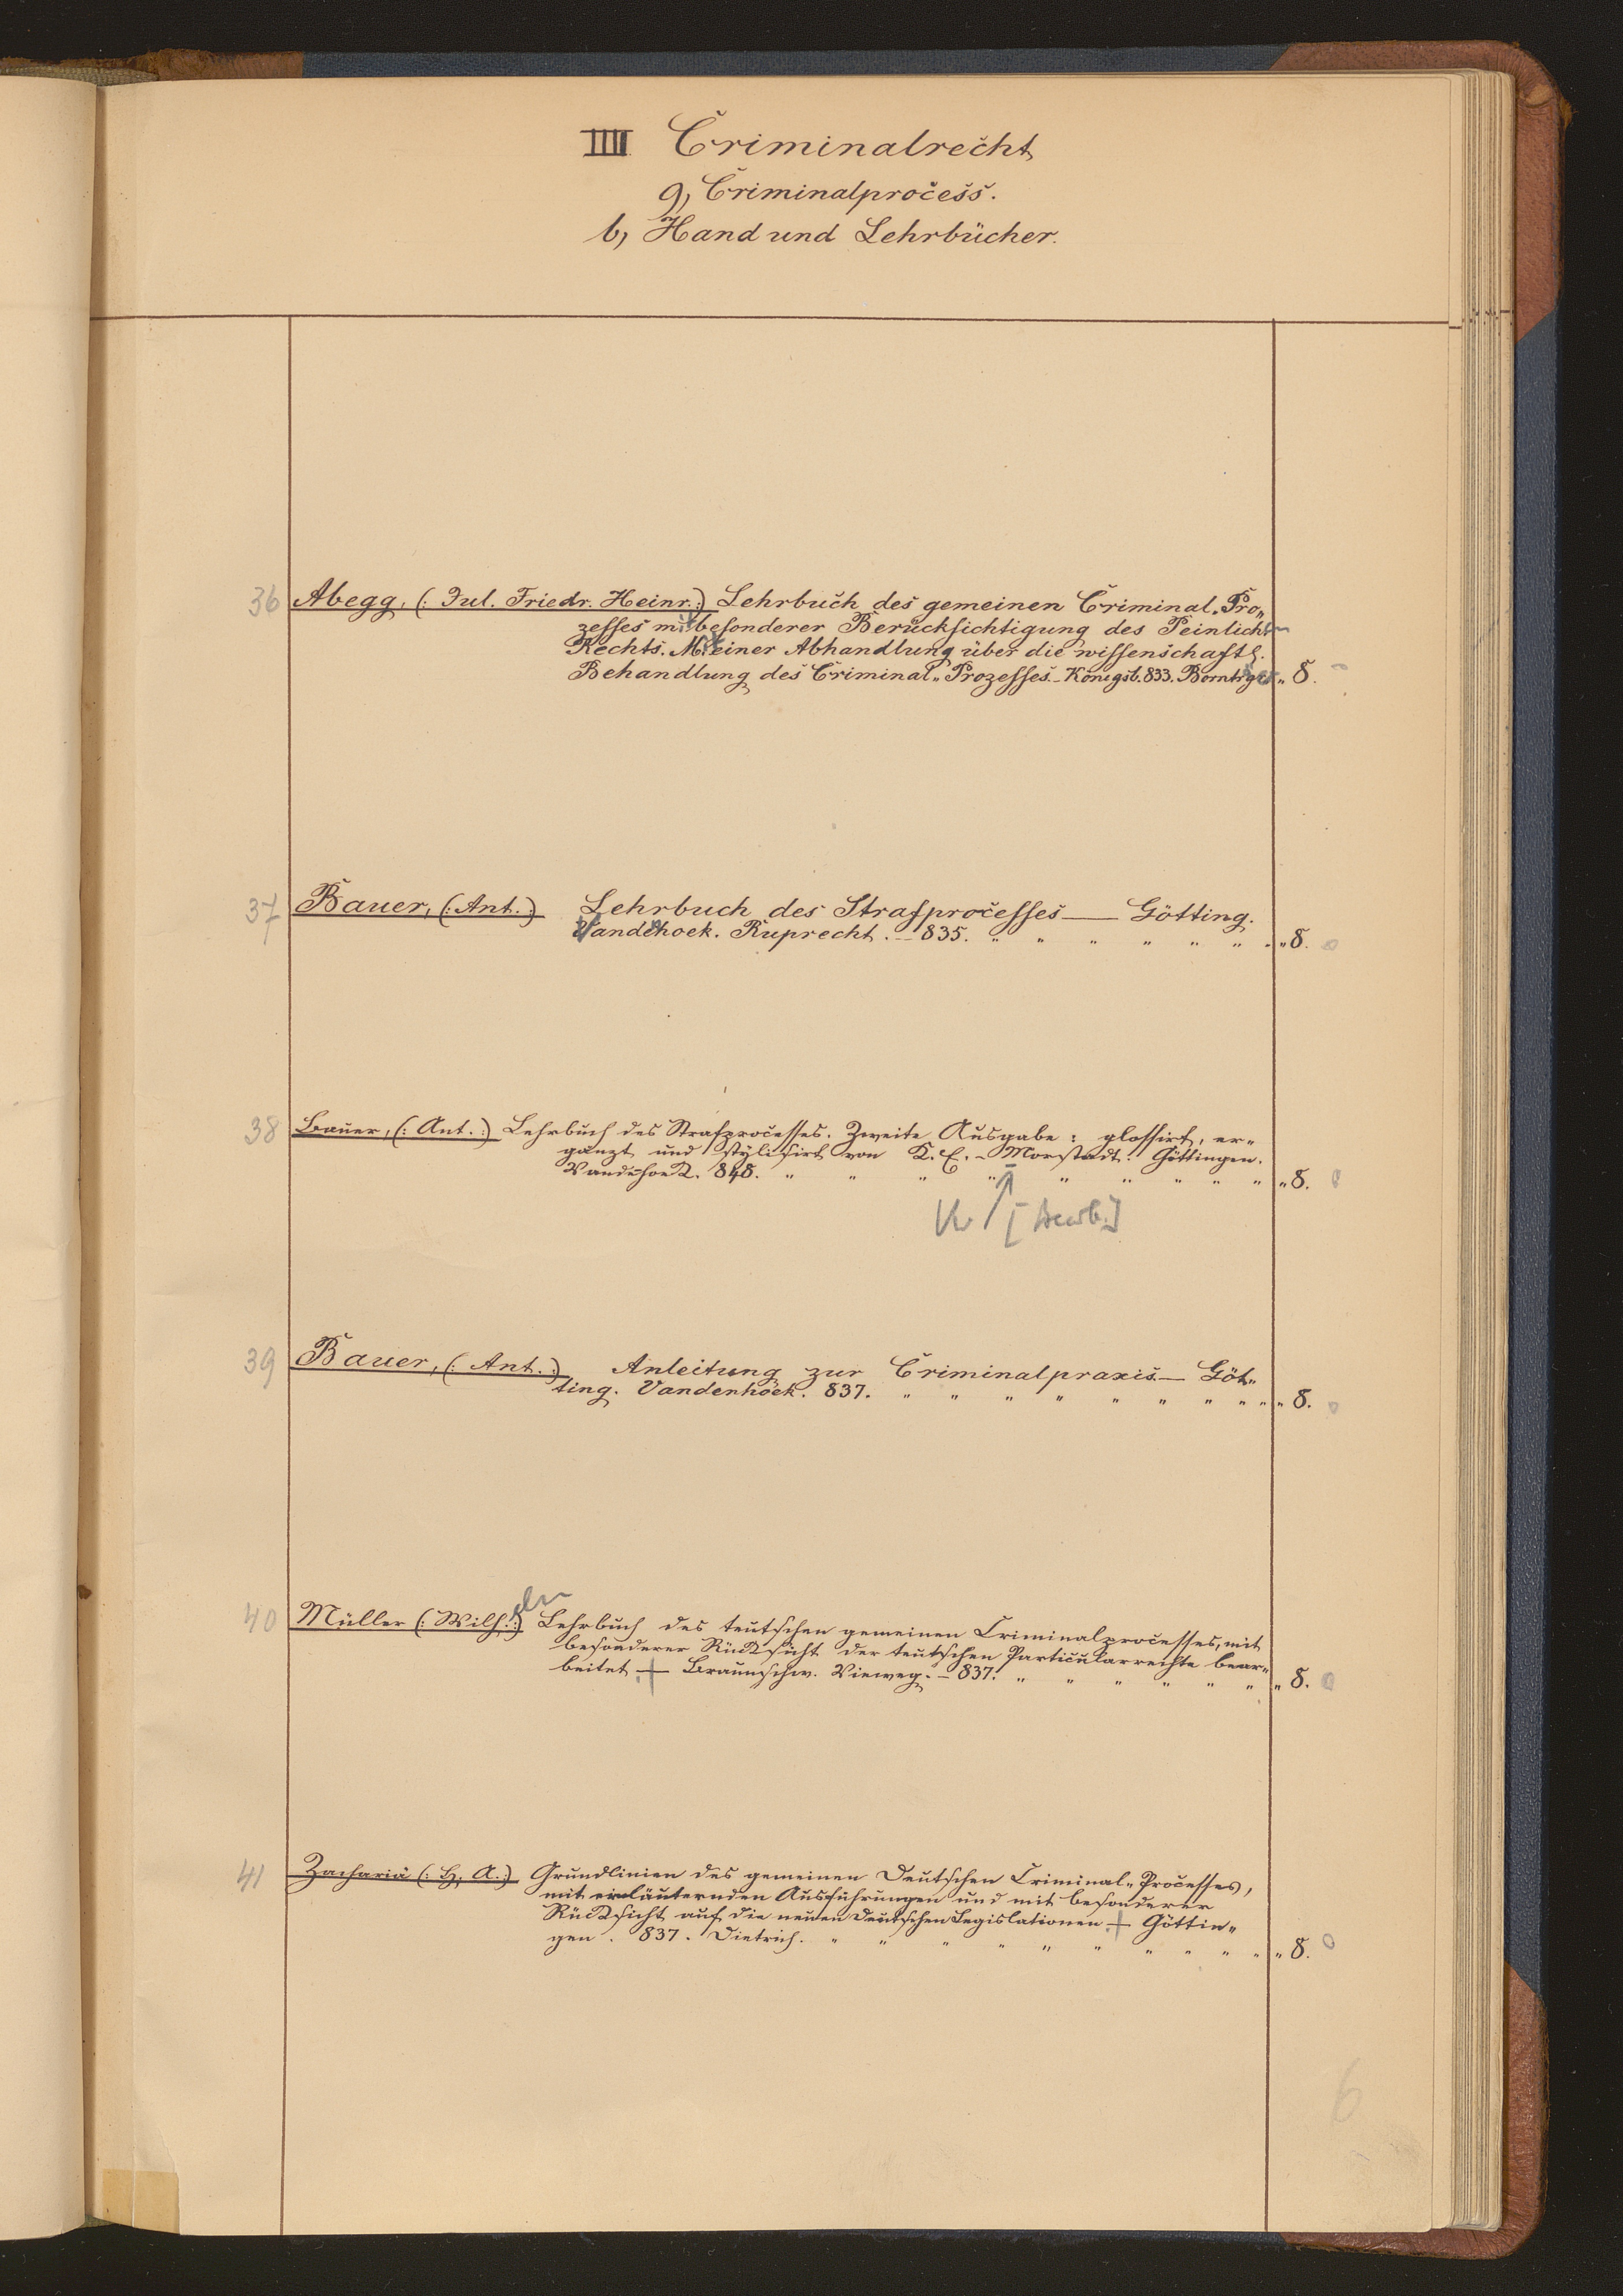 IIII Criminalrecht
g, Criminalprocess.
b, Hand und Lehrbücher.
36 Abegg, (: Jul. Friedr. Heinr. :) Lehrbuch des gemeinen Criminal-Pro„
zesses mit besonderer Berücksichtigung des Peinlichen
Rechts. Mit einer Abhandlung über die wissenschaftl.
Behandlung des Criminal„Prozesses. – Königsb. 833. Bornträger „ 8.
37 Bauer, (: Ant. :) Lehrbuch des Strafprocesses — Götting.
Vandehoek. Ruprecht. – 835. „ „ „ „ „ „ „ 8.
38 Bauer, (: Ant. :) Lehrbuch des Strafprocesses. Zweite Ausgabe: glossirt, er„
gänzt und stylisirt von K. E. – Morstadt. Göttingen.
Vandenhoeck. 848. „ „ „ „ „ „ „ „ „ „ 8.
[Bearb.]
39 Bauer, (: Ant. :) Anleitung zur Criminalpraxis. — Göt„
ting. Vandenhöek. 837. „ „ „ „ „ „ „ „ „ „ 8.
40 Müller (: Wilh. :) Lehrbuch des teutschen gemeinen Criminalprocesses, mit
besonderer Rücksicht der teutschen Particularrechte bear„
beitet. — Braunschw. Vieweg. – 837. „ „ „ „ „ „ „ 8.
41 Zachariä (: H. A. :) Grundlinien des gemeinen Deutschen Criminal„Processes,
mit erläuternden Ausführungen und mit besonderer
Rücksicht auf die neuen Deutschen Legislationen. — Göttin„
gen. 837. Dietrich. „ „ „ „ „ „ „ „ „ „ „ 8.
6